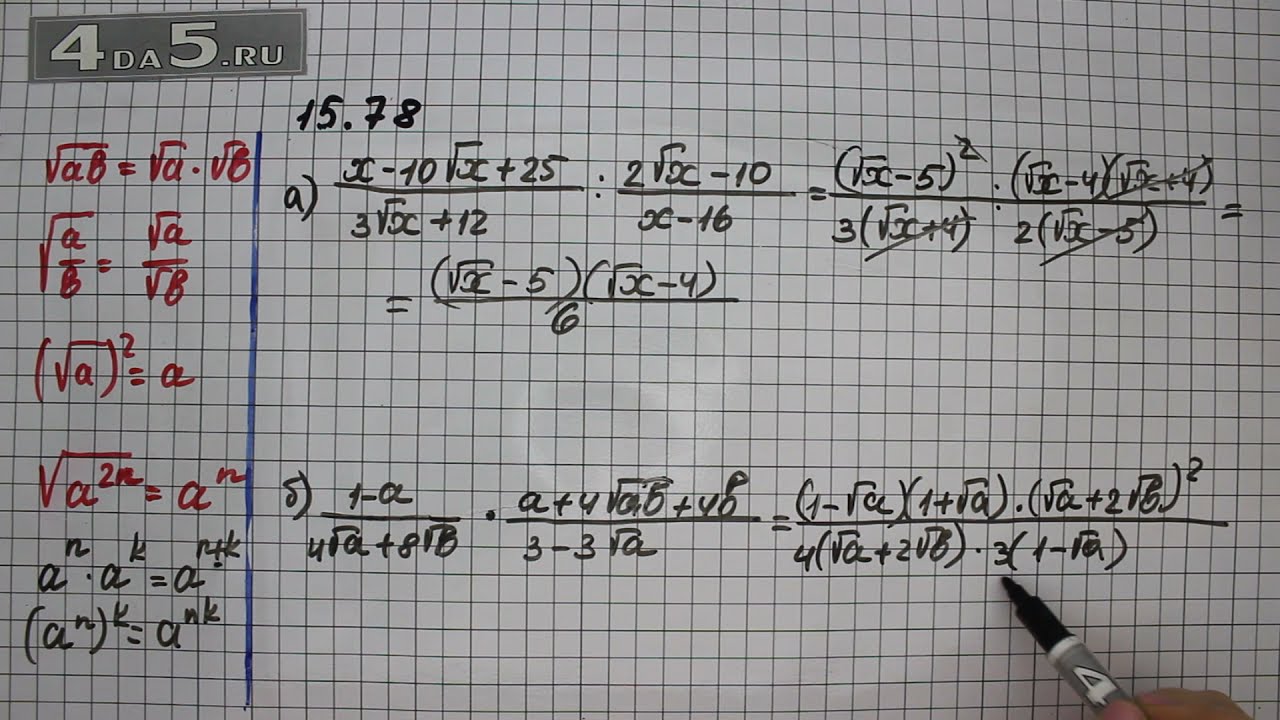 4DA5.RU
15.78
√ab = √a · √b
√(a/b) = √a/√b
(√a)² = a
√(a²ⁿ) = aⁿ
aⁿ · aᵏ = aⁿ⁺ᵏ
(aⁿ)ᵏ = aⁿᵏ
а) (x-10√x+25)/(3√x+12) : (2√x-10)/(x-16) = (√x-5)²/(3(√x+4)) · (√x-4)(√x+4)/(2(√x-5)) =
= (√x-5)(√x-4)/6
б) (1-a)/(4√a+8√b) · (a+4√ab+4b)/(3-3√a) = (1-√a)(1+√a)·(√a+2√b)²/(4(√a+2√b)·3(1-√a))
4